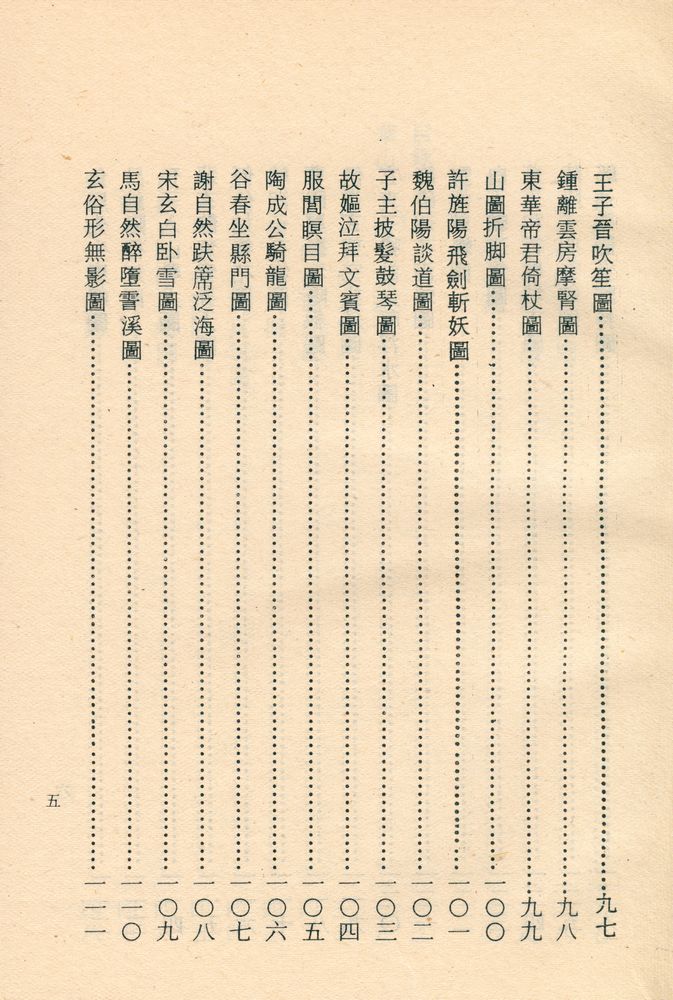 王子晉吹笙圖……九七
鍾離雲房摩腎圖……九八
東華帝君倚杖圖……九九
山圖折脚圖……一〇〇
許旌陽飛劍斬妖圖……一〇一
魏伯陽談道圖……一〇二
子主披髮鼓琴圖……一〇三
故嫗泣拜文賓圖……一〇四
服閭瞑目圖……一〇五
陶成公騎龍圖……一〇六
谷春坐縣門圖……一〇七
謝自然趺席泛海圖……一〇八
宋玄白卧雪圖……一〇九
馬自然醉墮霅溪圖……一一〇
玄俗形無影圖……一一一
五